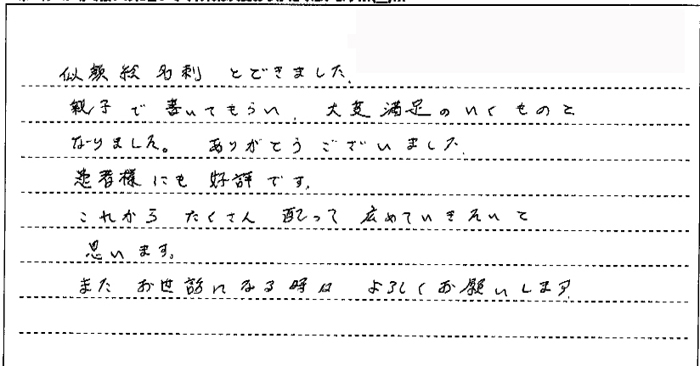 似顔絵名刺 とどきました。
親子で書いてもらい、大変満足のいくものと
なりました。ありがとうございました。
患者様にも好評です。
これからたくさん配って広めていきたいと
思います。
またお世話になる時はよろしくお願いします。